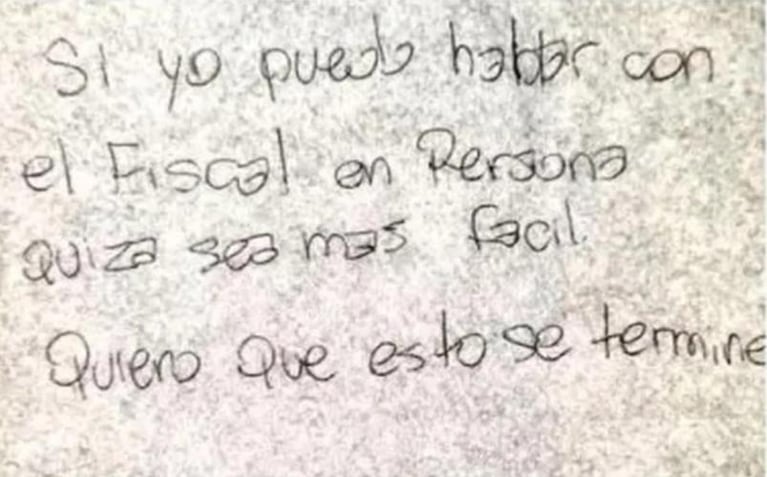 Si yo puedo hablar con
el Fiscal en Persona
quiza sea mas facil.
Quiero que esto se termine